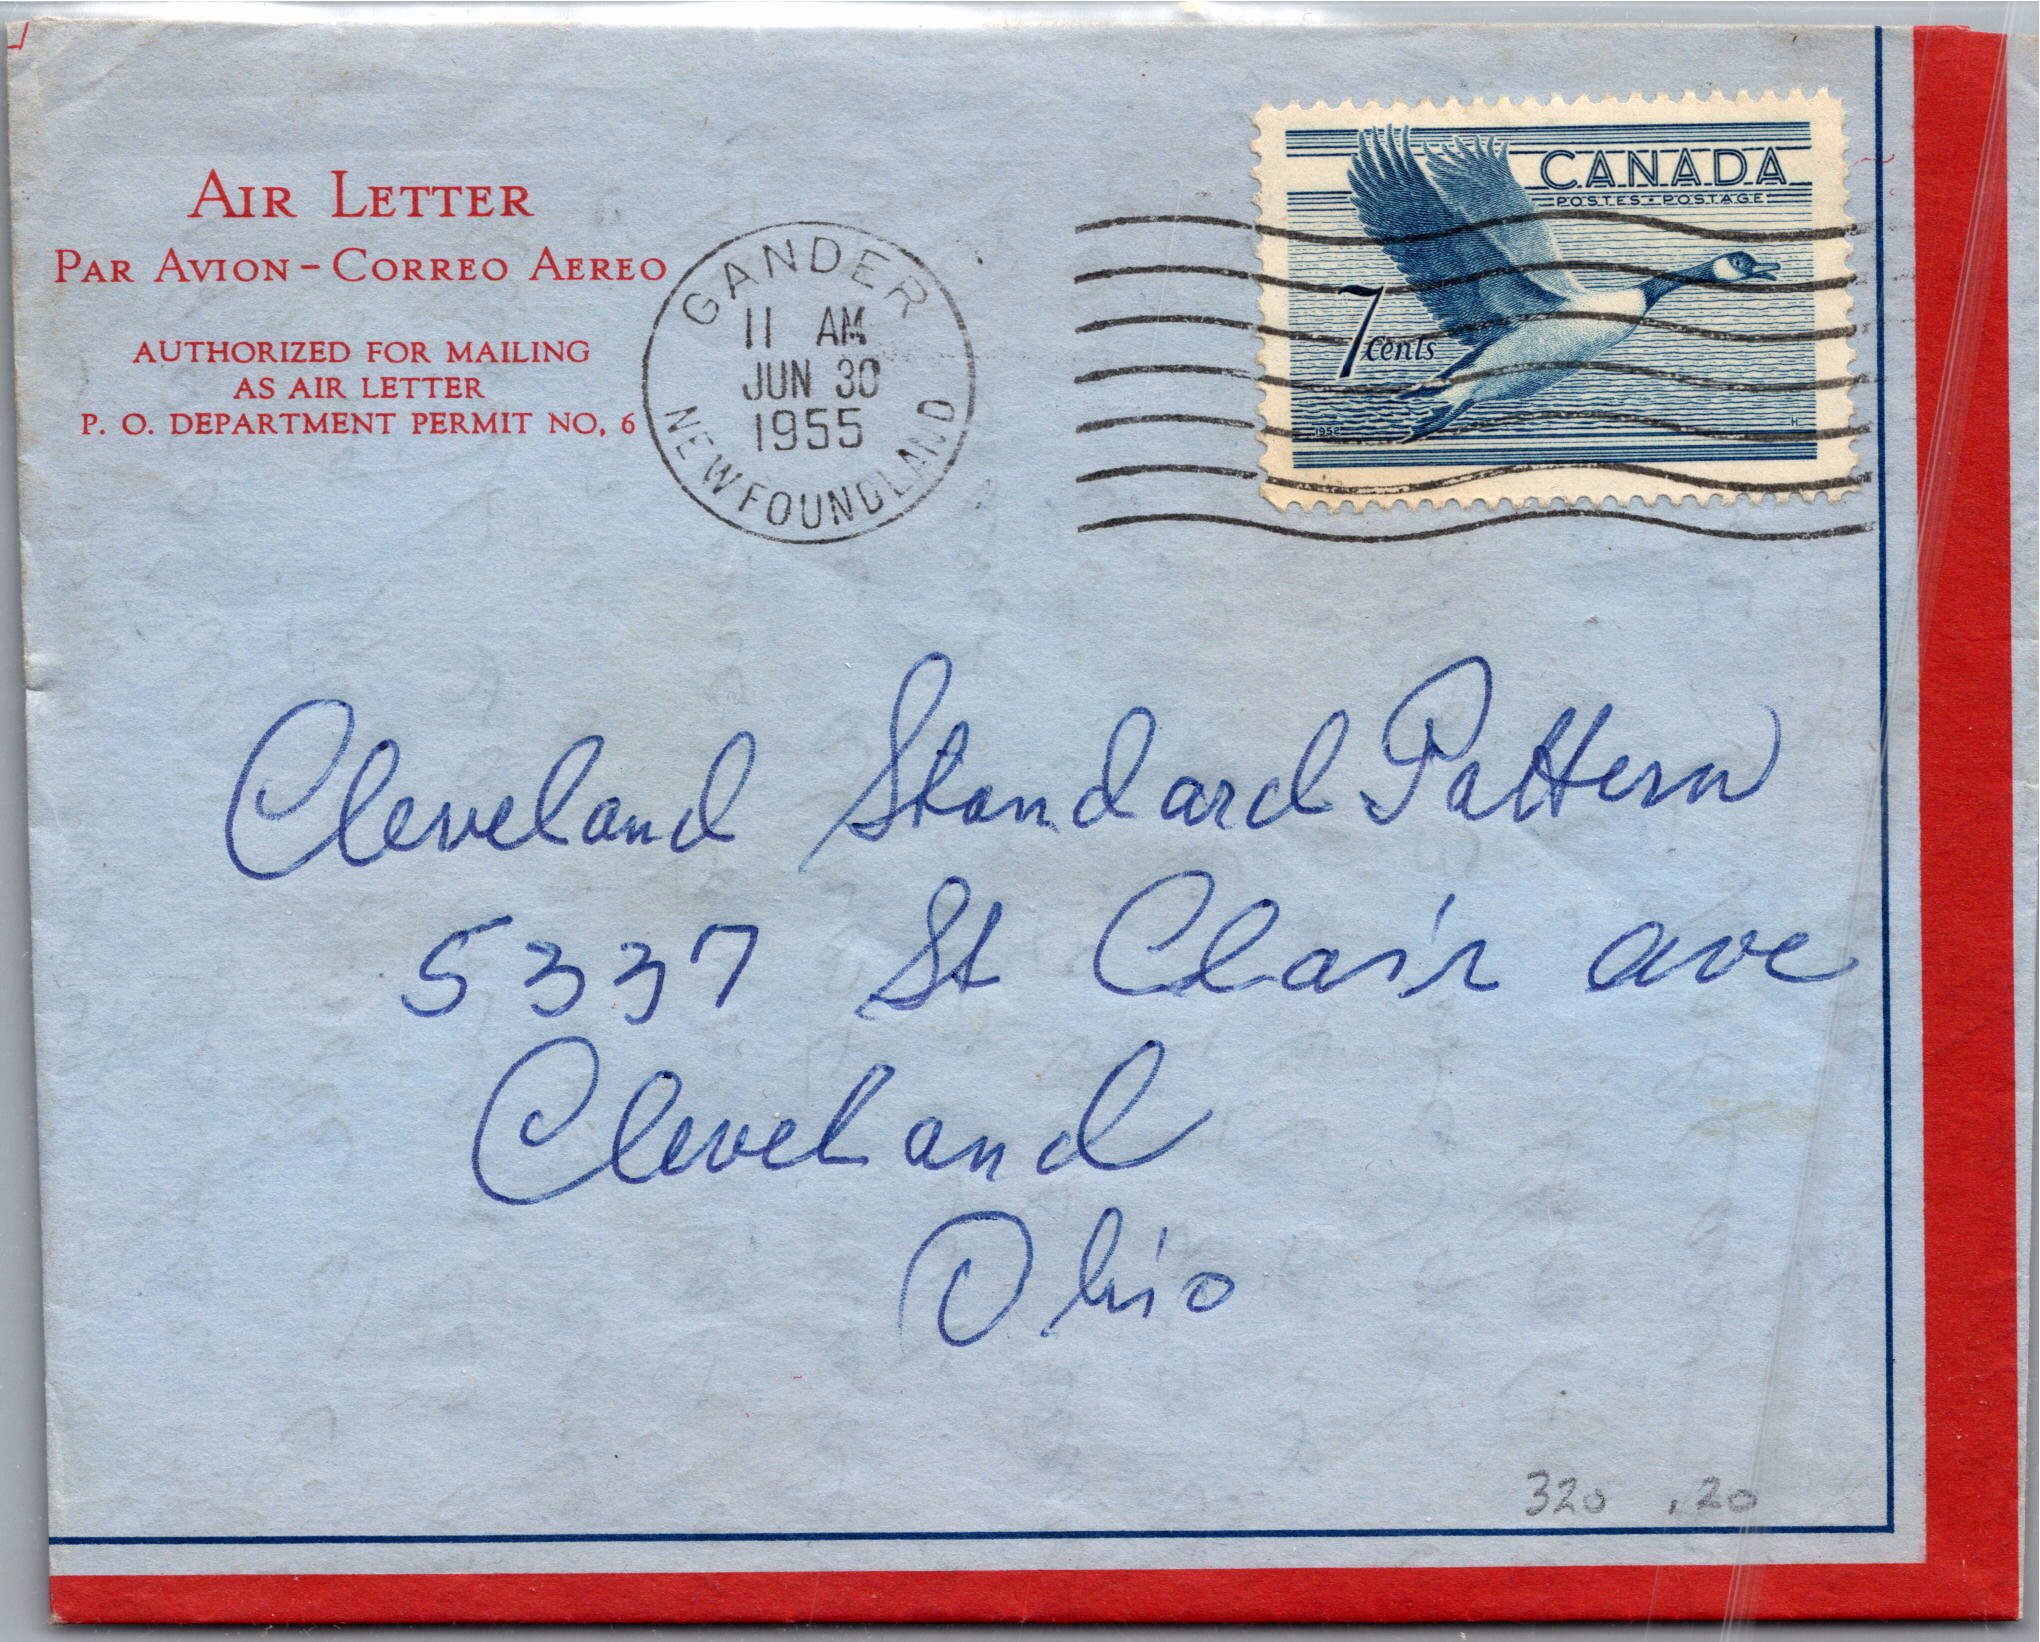 AIR LETTER
PAR AVION - CORREO AEREO
AUTHORIZED FOR MAILING
AS AIR LETTER
P. O. DEPARTMENT PERMIT NO, 6
GANDER
11 AM
JUN 30
1955
NEWFOUNDLAND
CANADA
POSTES · POSTAGE
7 cents
1952 H
Cleveland Standard Pattern
5337 St Clair ave
Cleveland
Ohio
320 .20